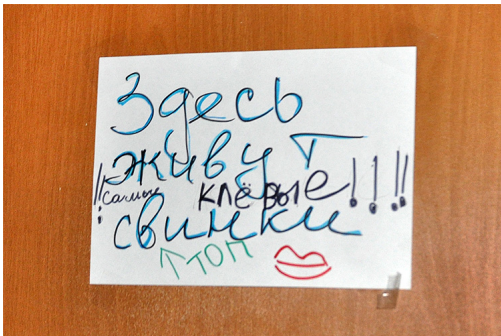 Здесь
живут
!! самые клёвые!!!!
свинки
↑ топ